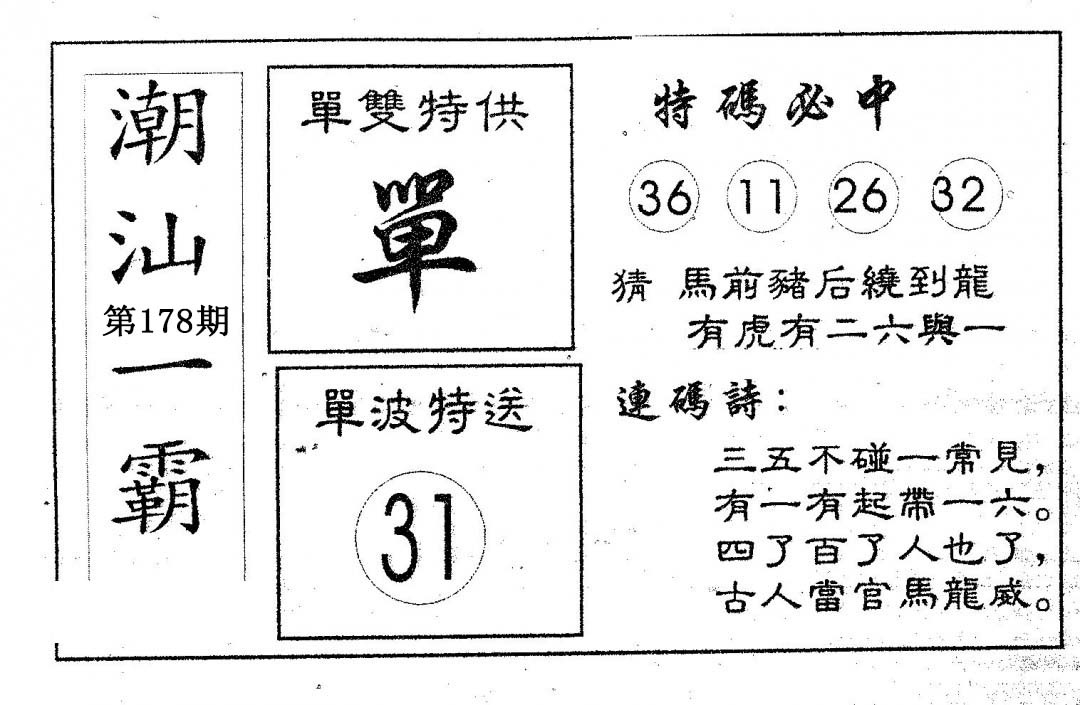 潮汕一霸
第178期
單雙特供
單
單波特送
31
特碼必中
36 11 26 32
猜 馬前豬后繞到龍
有虎有二六與一
連碼詩：
三五不碰一常見，
有一有起帶一六。
四了百了人也了，
古人當官馬龍威。